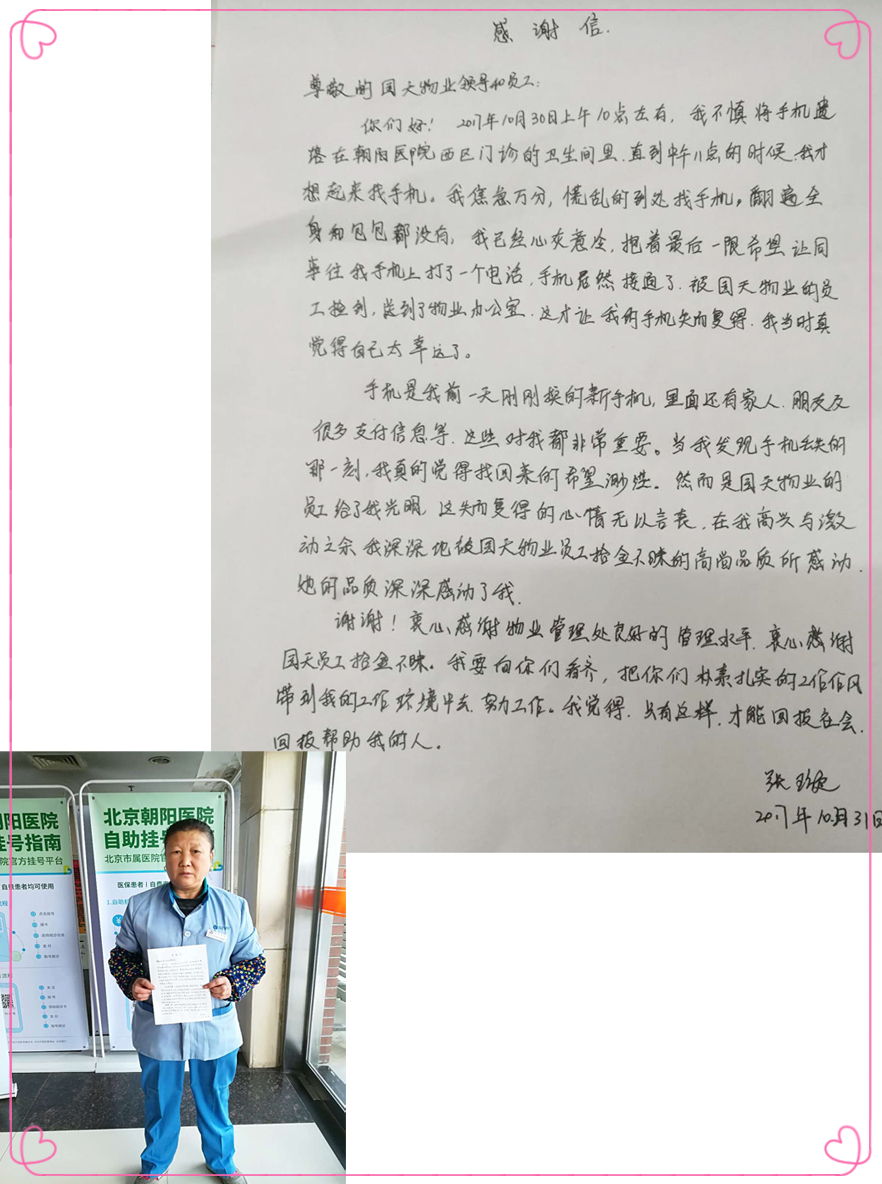 感谢信.
尊敬的国天物业领导和员工:
你们好! 2017年10月30日上午10点左右, 我不慎将手机遗
落在朝阳医院西区门诊的卫生间里.直到中午11点的时候.我才
想起来找手机。我焦急万分, 慌乱的到处找手机, 翻遍全
身和包包都没有, 我已经心灰意冷, 抱着最后一限希望让同
事往我手机上打了一个电话, 手机居然接通了.被国天物业的员
工捡到, 送到了物业办公室.这才让我的手机失而复得.我当时真
觉得自己太幸运了。
手机是我前一天刚刚换的新手机, 里面还有家人.朋友及
很多支付信息等.这些对我都非常重要。当我发现手机丢失的
那一刻, 我真的觉得找回来的希望渺茫。然而是国天物业的
员工给了我光明.这失而复得的心情无以言表.在我高兴与激
动之余我深深地被国天物业员工拾金不昧的高尚品质所感动.
她的品质深深感动了我.
谢谢! 衷心感谢物业管理处良好的管理水平.衷心感谢
国天员工拾金不昧。我要向你们看齐, 把你们朴素扎实的工作作风
带到我的工作环境中去.努力工作。我觉得.只有这样.才能回报社会.
回报帮助我的人。
张
2017年10月31日
阳医院
号指南
院官方挂号平台
自费患者均可使用
北京朝阳医院
自助挂号
北京市属医院官
医保患者|自费